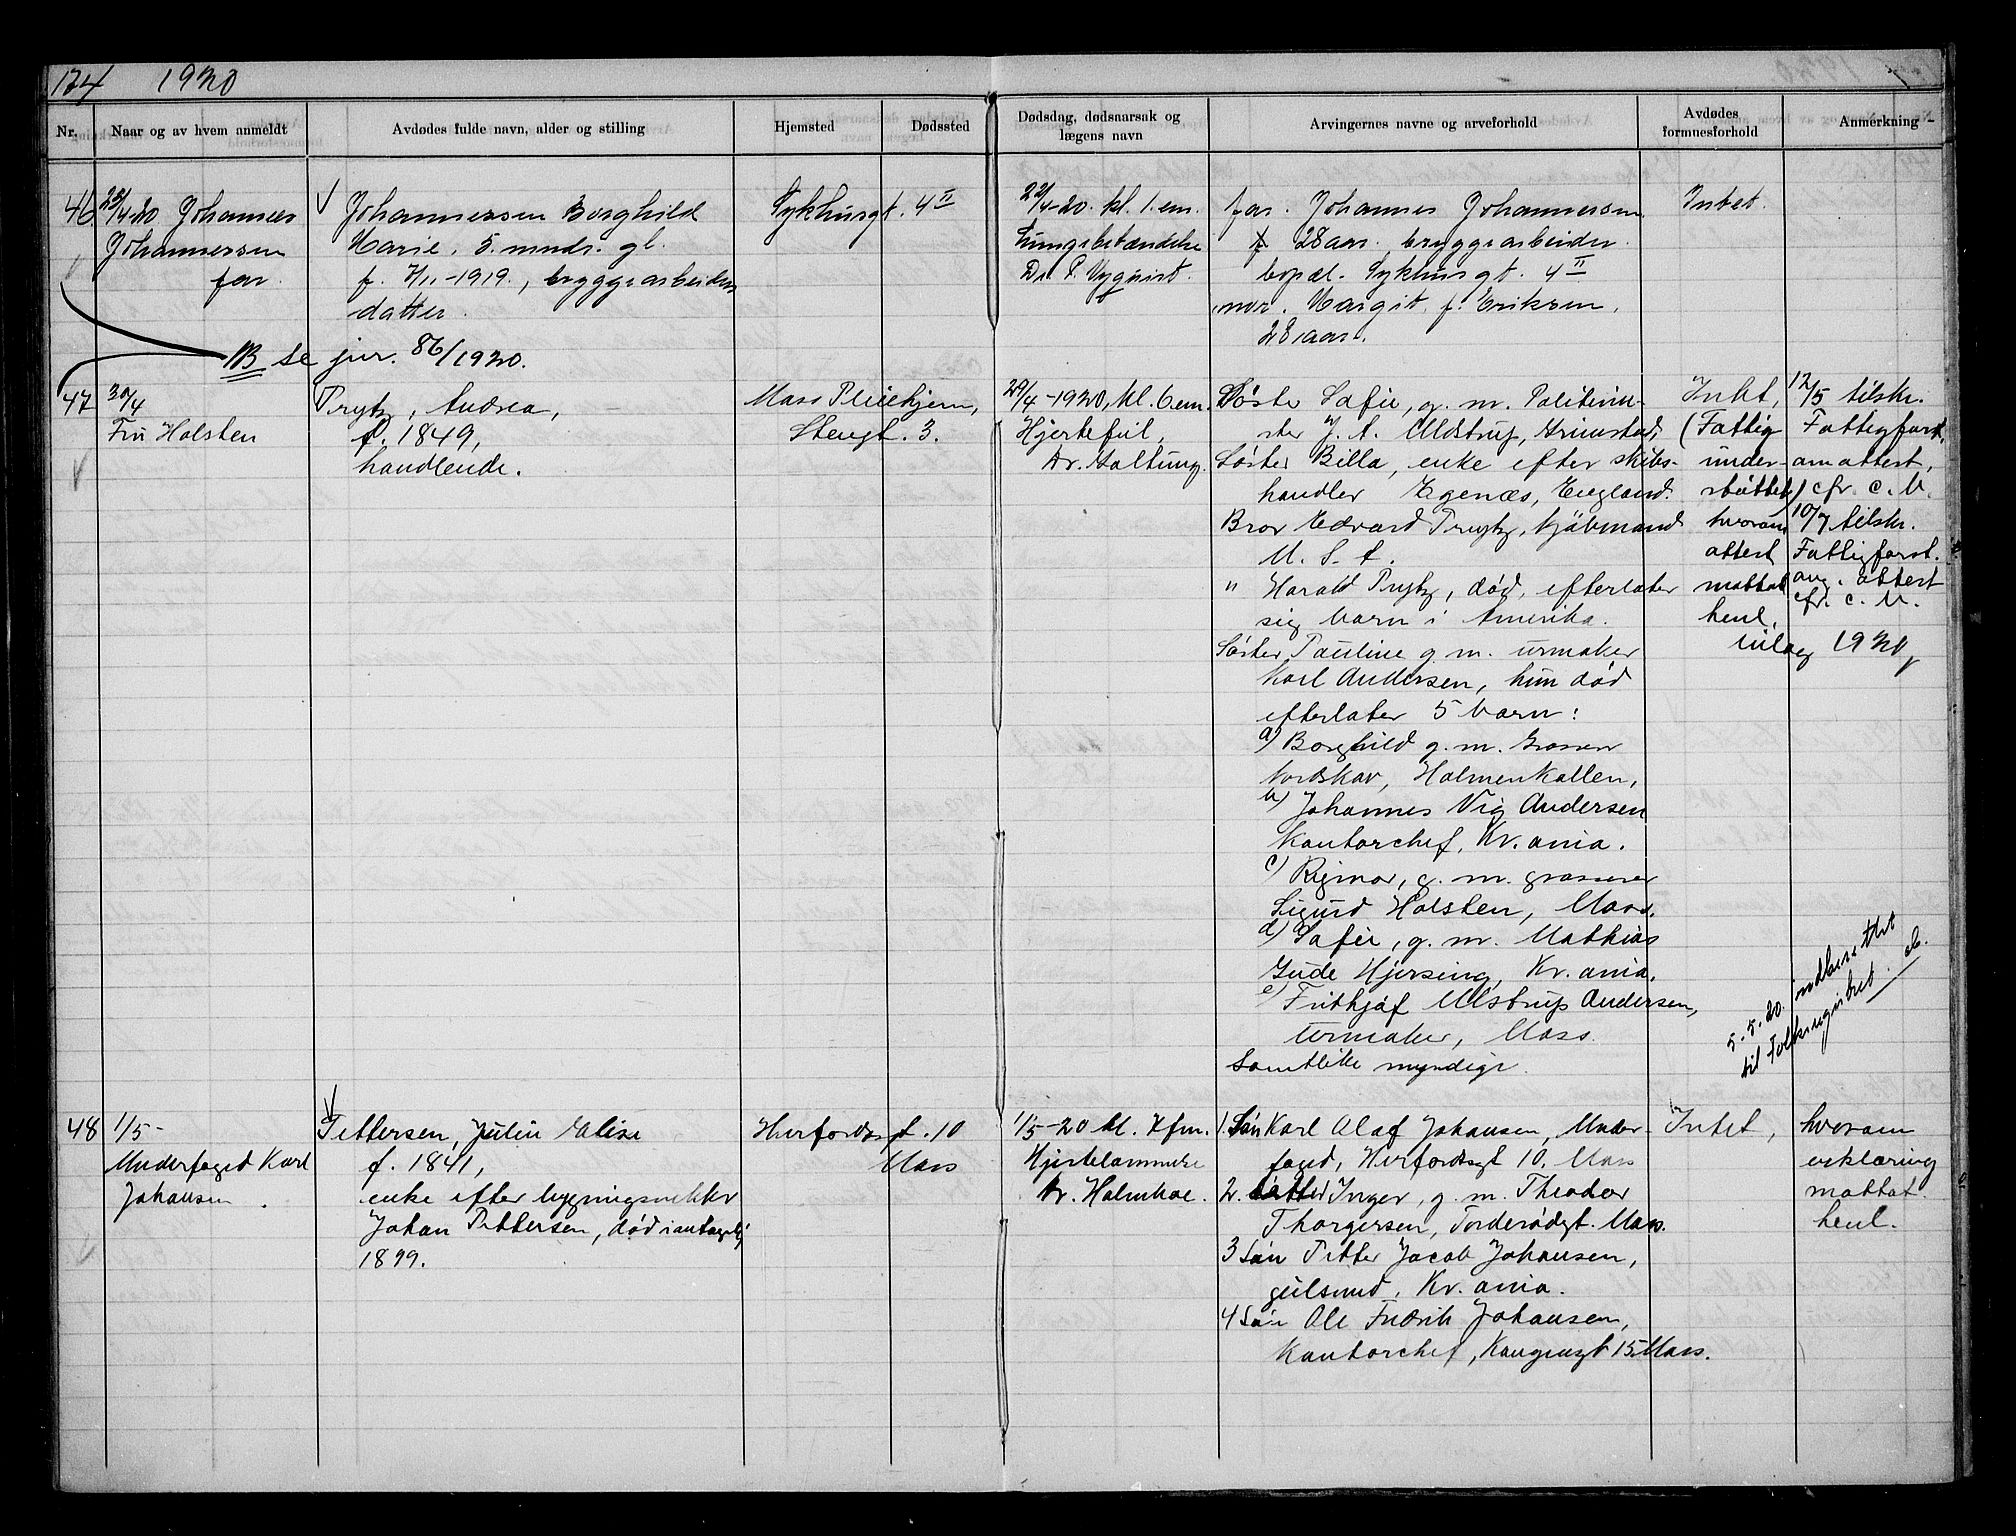 174 1920
Nr.
Naar og av hvem anmeldt
Avdødes fulde navn, alder og stilling
Hjemsted
Dødssted
Dødsdag, dødsaarsak og
lægens navn
Arvingernes navne og arveforhold
Avdødes
formuesforhold
Anmerkning
46. 25/4-20 Johannes
Johannessen
far.
Johannessen Borghild
Marie, 5. mndr. gl.
f. 7/11-1919, bryggearbeiders
datter.
Sykhusgt. 4 II
22/4-20. kl. 1. em.
Lungebetændelse
Dr. P. Nyquist.
far. Johannes Johannessen
28 aar. bryggearbeider.
bopæl. Sykhusgt. 4 II
mor. Margit f. Eriksen.
28 aar.
Intet.
NB se jur. 86/1920.
47 30/4
Fru Holsten
Prytz, Andrea,
f. 1849,
handlende.
Moss Pleiehjem,
Stengt. 3.
29/4-1920, kl. 6 em.
Hjertefeil,
Dr. Aaltung.
Søster Sofie, g. m. Politimi-
ster J. A. Ulstrup, Grimstad,
Søster Billa, enke efter skibs-
handler Egenæs, England.
Bror Edvard Prytz, kjøbmand
U. S. A.
" Harald Prytz, død, efterlater
sig barn i Amerika.
Søster Pauline g. m. urmaker
Karl Andersen, hun død
efterlater 5 barn:
a) Borghild g. m. Grosser
Nordskov, Holmenkollen,
b) Johannes Vig Andersen
Kontorchef, Kr.ania.
c) Rigmor, g. m. grosserer
Sigurd Holsten, Moss.
d) Sofie, g. m. Mathias
Gude Hjersing, Kr.ania.
e) Frithjof Ulstrup Andersen,
Urmaker, Moss.
Samtlike myndige.
Intet,
(Fattig
under-
støttet)
hvorom
attest
mottat
henl.
bilag 1920,
12/5 tilskr.
Fattigforst.
om attest,
cfr. c. B.
10/7 tilskr.
Fattigforst.
ang. attest
cfr. c. B.
5.-5.-20. indberettet
til Folkeregistret.
48 1/5-
Underfoged Karl
Johansen.
Pettersen, Julie Elise
f. 1841,
enke efter bygningssnekker
Johan Pettersen, død iantagelig
1899.
Herfordsgt. 10
Moss
1/5-20 kl. 7 fm.
Hjertelammelse
Dr. Holmboe.
1. Søn Karl Olaf Johansen, Under-
foged, Herfordsgt 10. Moss
2. Datter Inger, g. m. Theodor
Thorgersen, Torderødgt. Moss.
3 Søn Petter Jacob Johansen,
gulsmed, Kr.ania.
4 Søn Ole Fredrik Johansen,
Kontorchef, Kongensgt 15 Moss.
Intet,
hvorom
erklæring
mottat
henl.